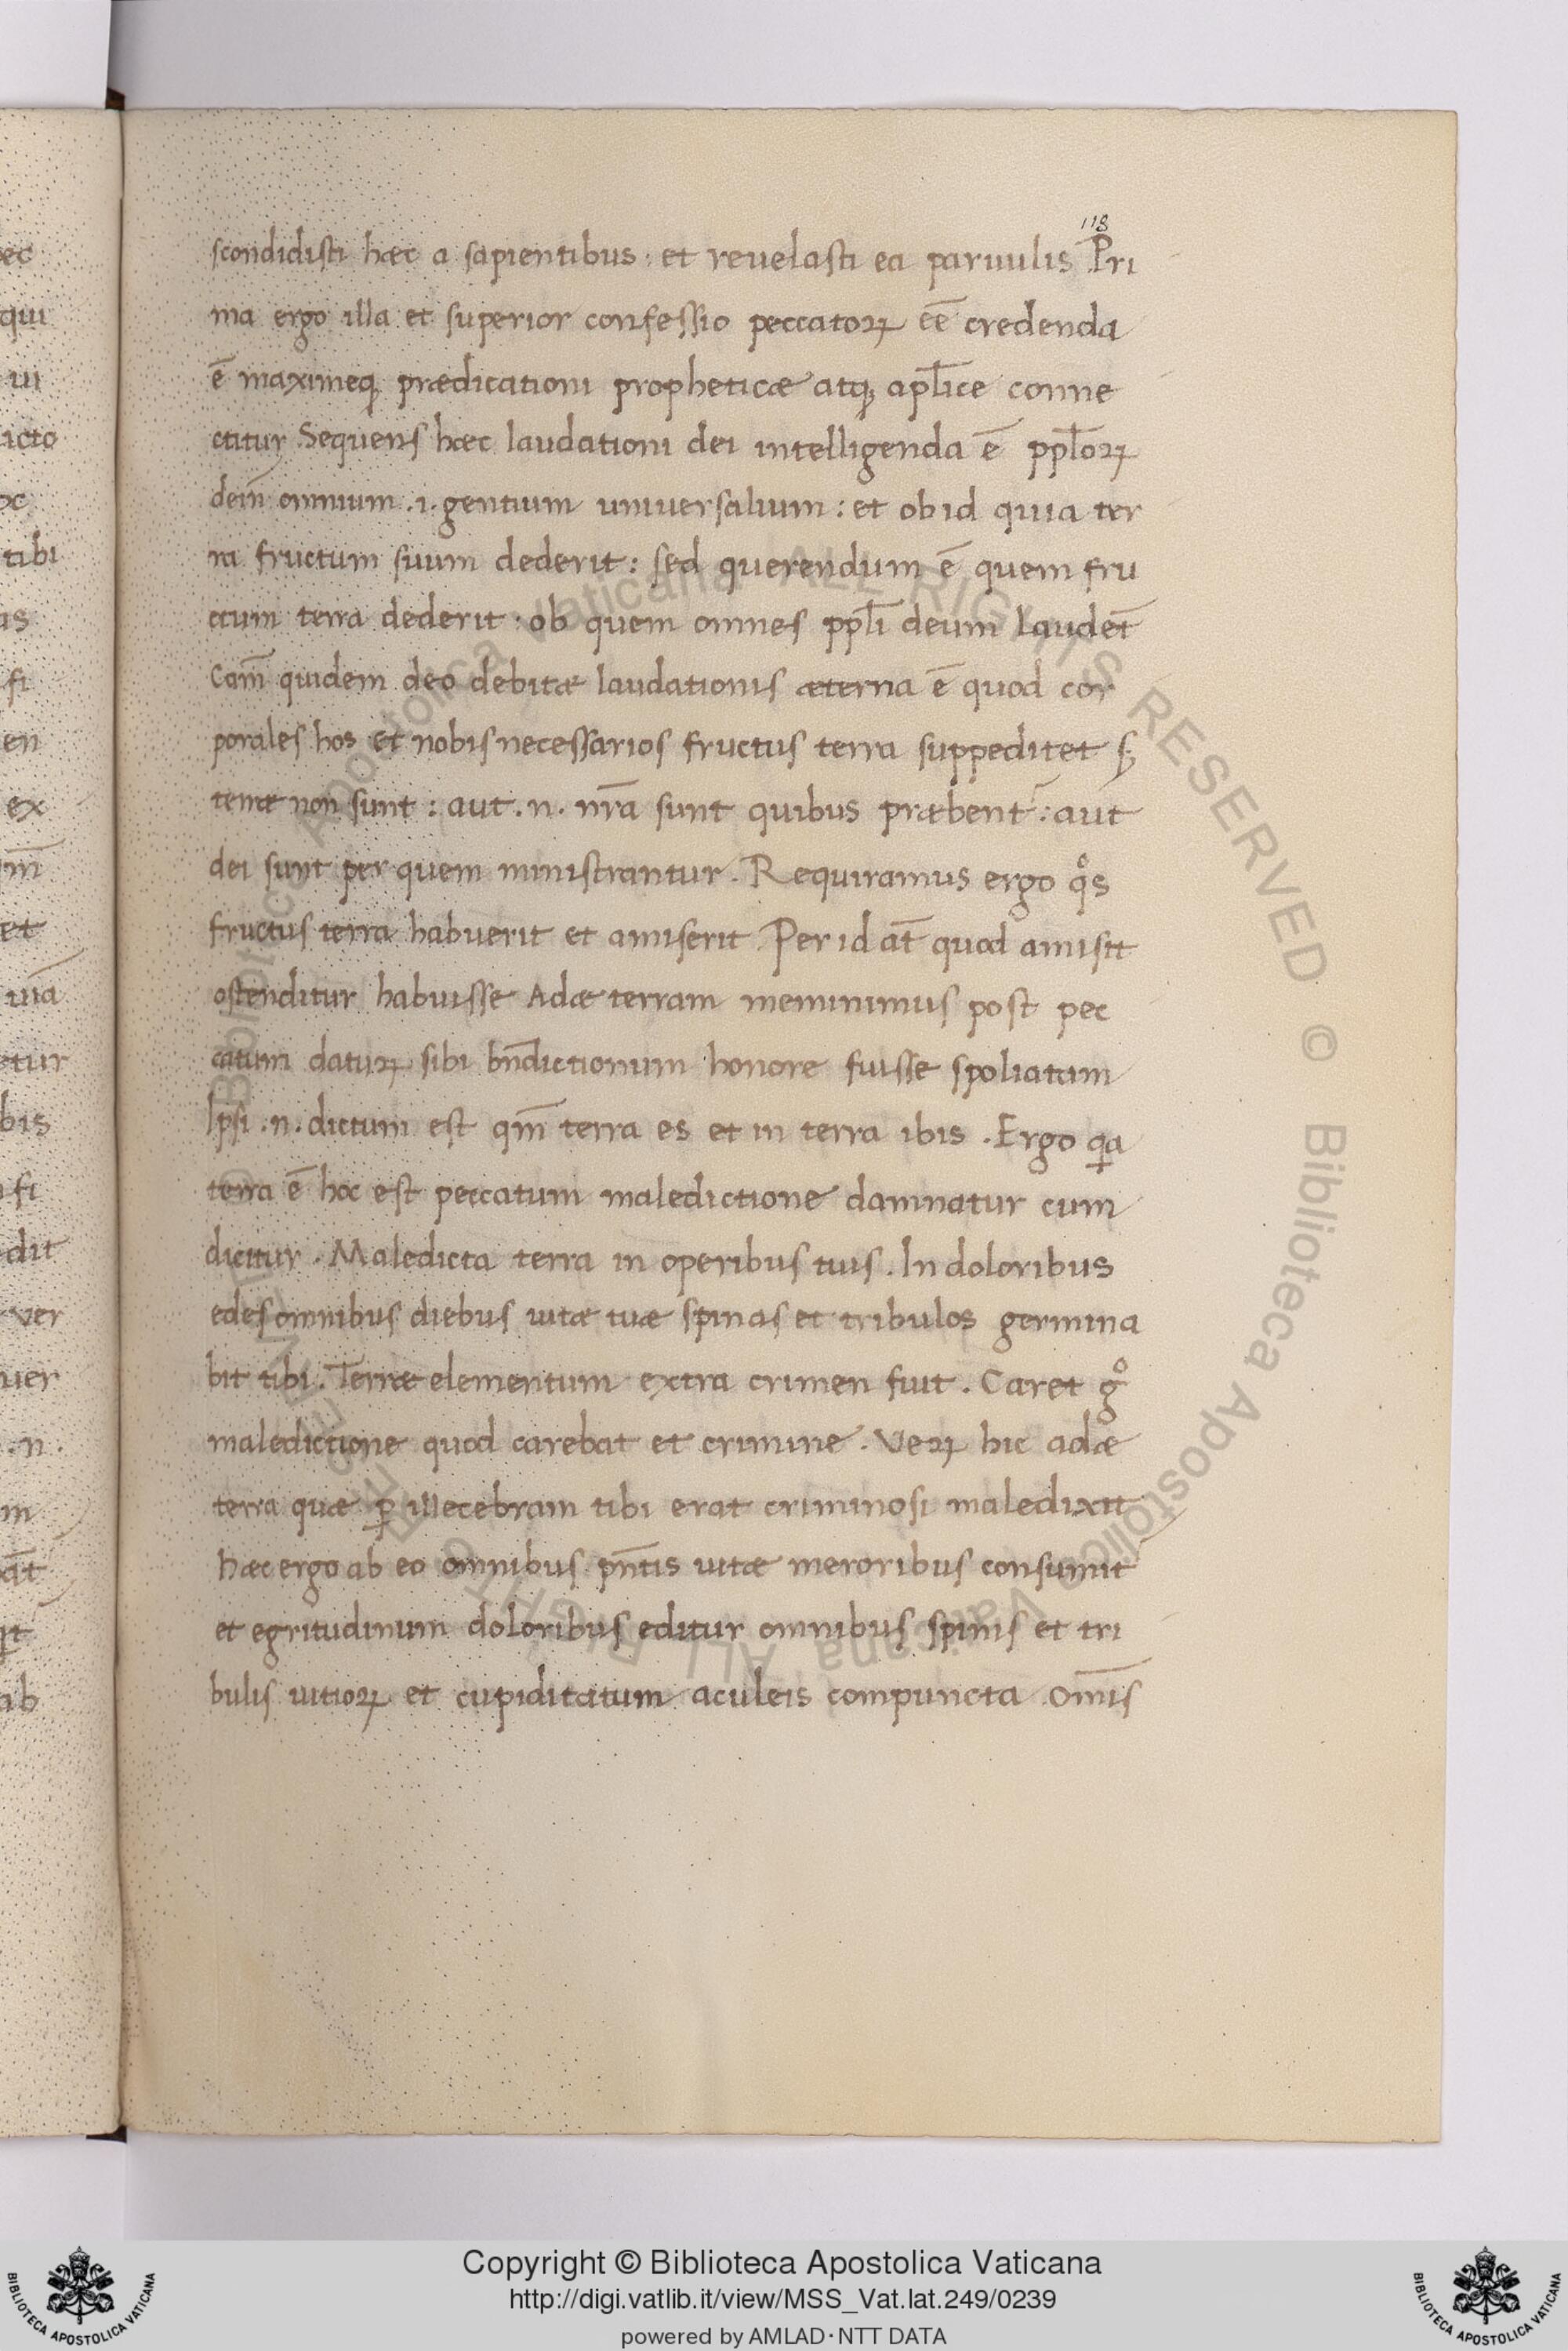 118
scondidisti hæc a sapientibus : et reuelasti ea paruulis Pri
ma ergo illa et superior confessio peccatoꝝ eē credenda
ē maximeqꝫ prædicationi propheticæ atqꝫ apl̄ice conne
ctitur Sequens hæc laudationi dei intelligenda ē ppl̄oꝝ
dein̄ omnium .i. gentium uniuersalium : et ob id quia ter
ra fructum suum dederit : sed querendum ē quem fru
ctum terra dederit : ob quem omnes ppl̄i deum laudet̄
Cam̄ quidem deo debitæ laudationis æterna ē quod cor
porales hos et nobis necessarios fructus terra suppeditet sꝫ
terræ non sunt : aut .n. nr̄a sunt quibus præbent̄ : aut
dei sunt per quem ministrantur . Requiramus ergo qͦs
fructus terra habuerit et amiserit . Per id at̄ quod amisit
ostenditur habuisse Adæ terram meminimus post pec
catum datuꝝ sibi bn̄dictionum honore fuisse spoliatam
Ipsi .n. dictum est qm̄ terra es et in terra ibis . Ergo qa
terra ē hoc est peccatum maledictione damnatur cum
dicitur . Maledicta terra in operibus tuis . In doloribus
edes omnibus diebus uitæ tuæ spinas et tribulos germina
bit tibi . Terræ elementum extra crimen fuit . Caret gͦ
maledictione quod carebat et crimine . Veꝝ hic adæ
terra quæ ꝑ illecebram tibi erat criminosi maledixit
hæc ergo ab eo omnibus pn̄tis uitæ meroribus consumit̄
et egritudinum doloribus editur omnibus spinis et tri
bulis uitioꝝ et cupiditatum aculeis compuncta . Om̄is
Copyright © Biblioteca Apostolica Vaticana
http://digi.vatlib.it/view/MSS_Vat.lat.249/0239
powered by AMLAD·NTT DATA